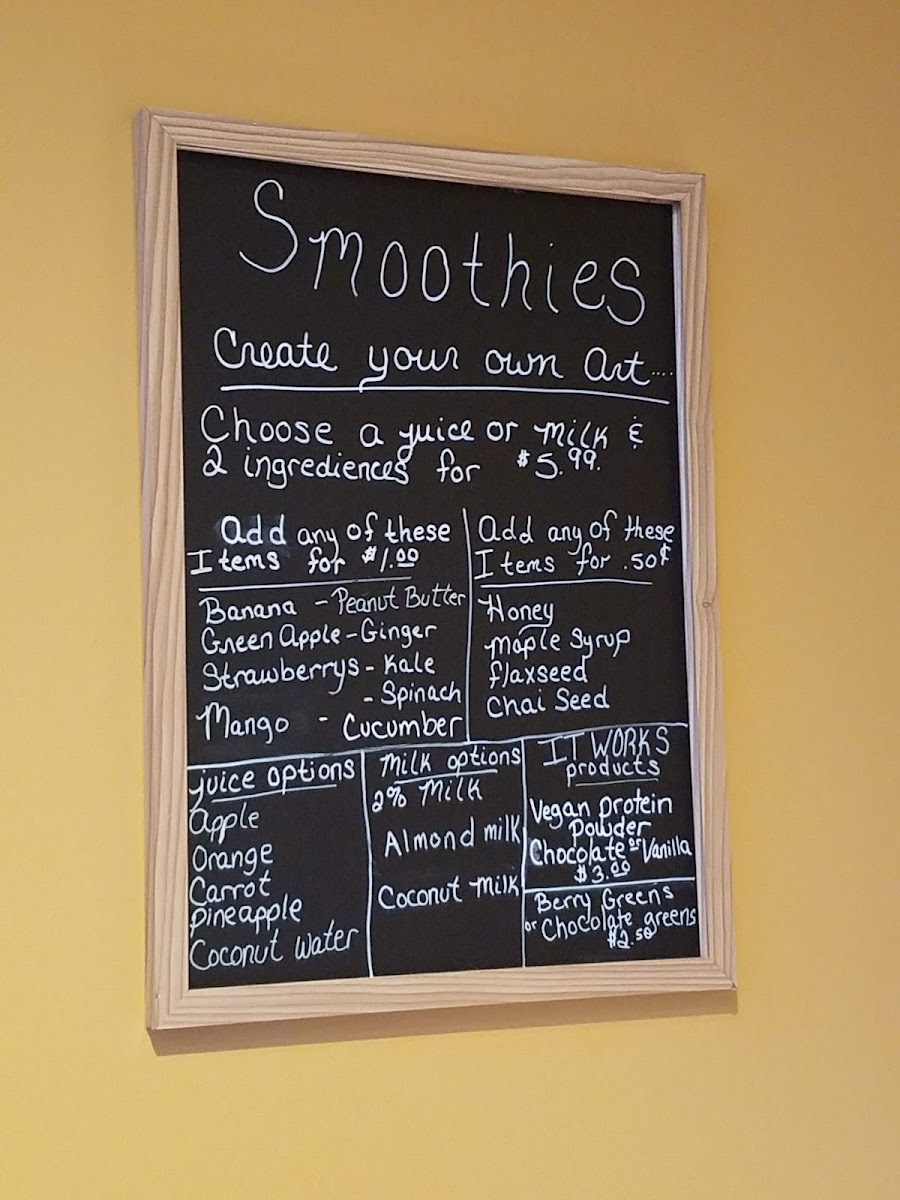 Smoothies
Create your own Art....
Choose a juice or Milk &
2 ingrediences for $5.99.
Add any of these
Items for $1.00
Banana - Peanut Butter
Green Apple - Ginger
Strawberrys - Kale
- Spinach
Mango - Cucumber
Add any of these
Items for .50¢
Honey
Maple Syrup
flaxseed
Chai Seed
juice options
Apple
Orange
Carrot
Pineapple
Coconut Water
Milk options
2% Milk
Almond milk
Coconut Milk
IT WORKS
products
Vegan protein
Powder
Chocolate or Vanilla
$3.00
Berry Greens
or Chocolate greens
$2.50